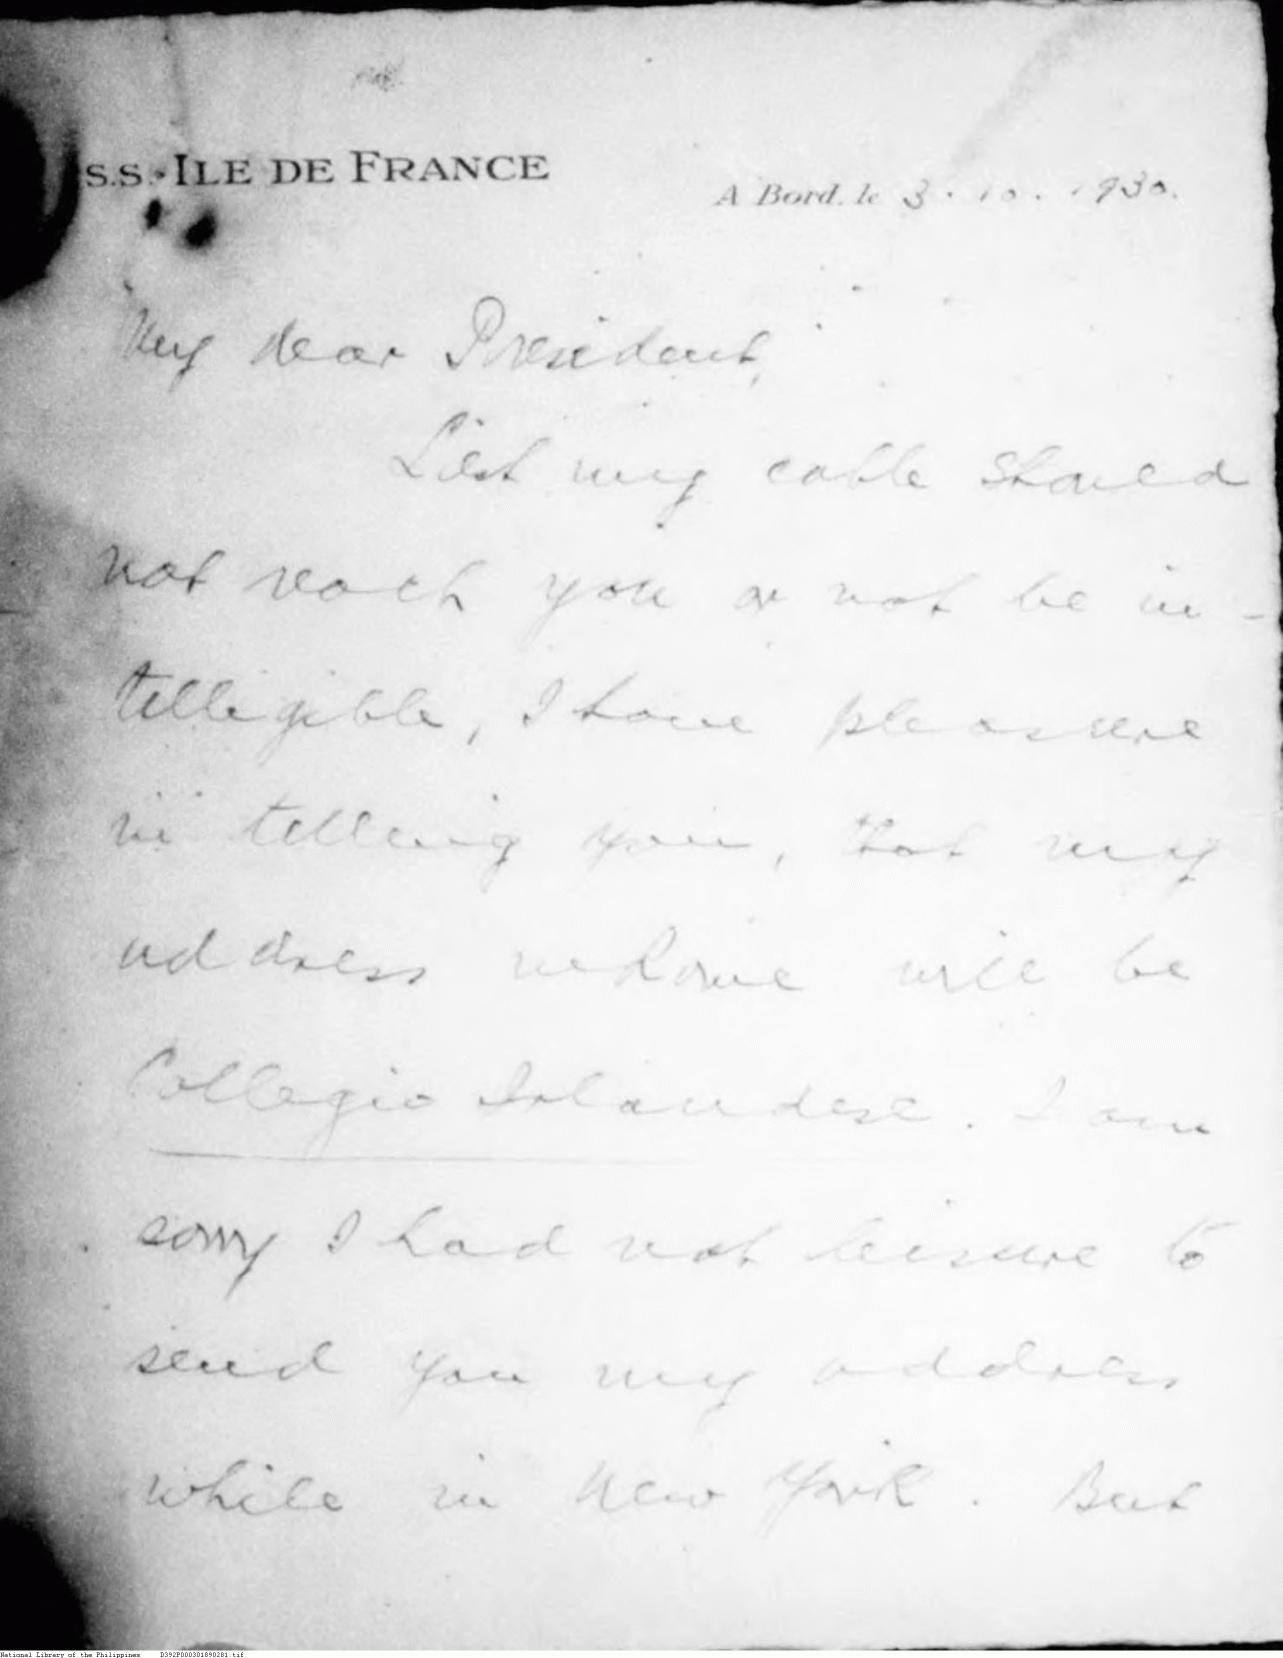 S.S. ILE DE FRANCE
A Bord, le 3. 10. 1930.
My dear President,
Lest my cable should
not reach you or not be in-
telligible, I have pleasure
in telling you, that my
address in Rome will be
Collegio Irlandese. I am
sorry I had not leisure to
send you my address
while in New York. But
National Library of the Philippines D392P000301890281.tif